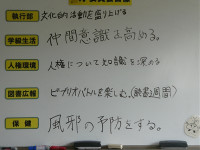 執行部 文化的活動を盛り上げる
学級生活 仲間意識を高める。
人権環境 人権について知識を深める
図書広報 ビブリオバトルを楽しむ。(読書週間)
保健 風邪の予防をする。